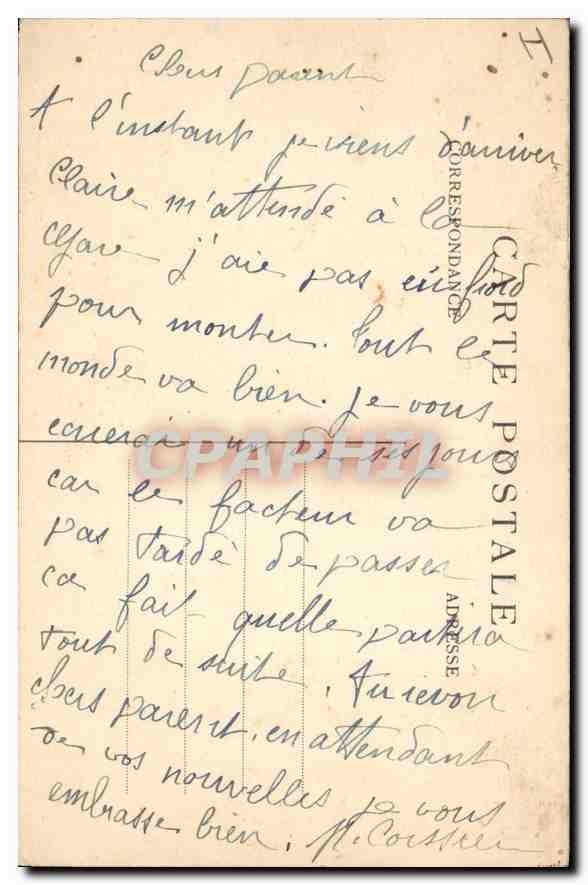 Chers parent
A l'instant je viens d'arriver
Claire m'attendé à la
gare j'aie pas eu froid
pour monter. Tout le
monde va bien. je vous
ecrerai un de ses jours
car le facteur va
pas tardé de passer
ca fait quelle partira
tout de suite. Au revoir
chers parent. en attendant
de vos nouvelles je vous
embrasse bien.
CARTE POSTALE
CORRESPONDANCE
ADRESSE
I
CPAPHIL